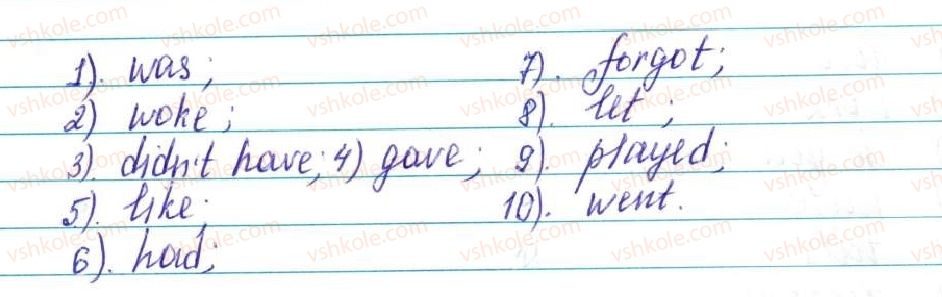 1). was;
2) woke;
3) didn't have; 4) gave;
5). like;
6). had;
7). forgot;
8). let;
9). played;
10). went.